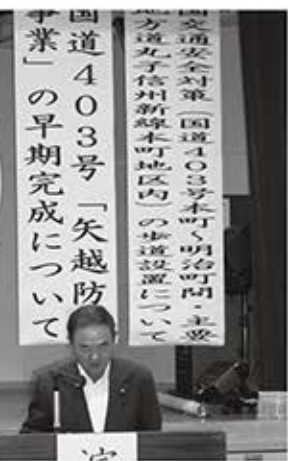 交通安全対策(国道403号本町～明治町間・主要
地方道丸子信州新線本町地区内)の歩道設置について
国道403号「矢越防
事業」の早期完成について